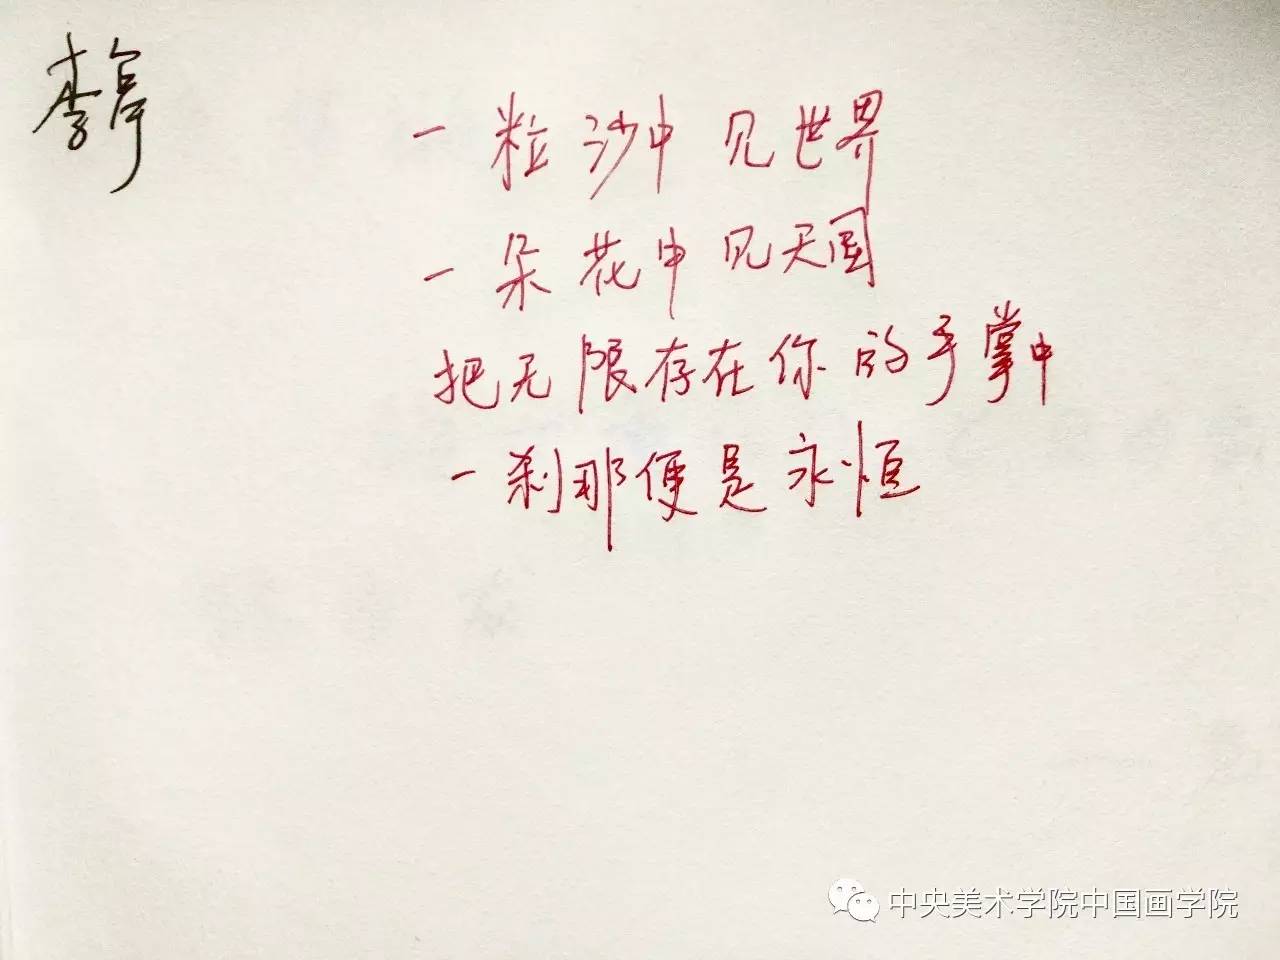 李
一粒沙中见世界
一朵花中见天国
把无限存在你的手掌中
一刹那便是永恒
中央美术学院中国画学院